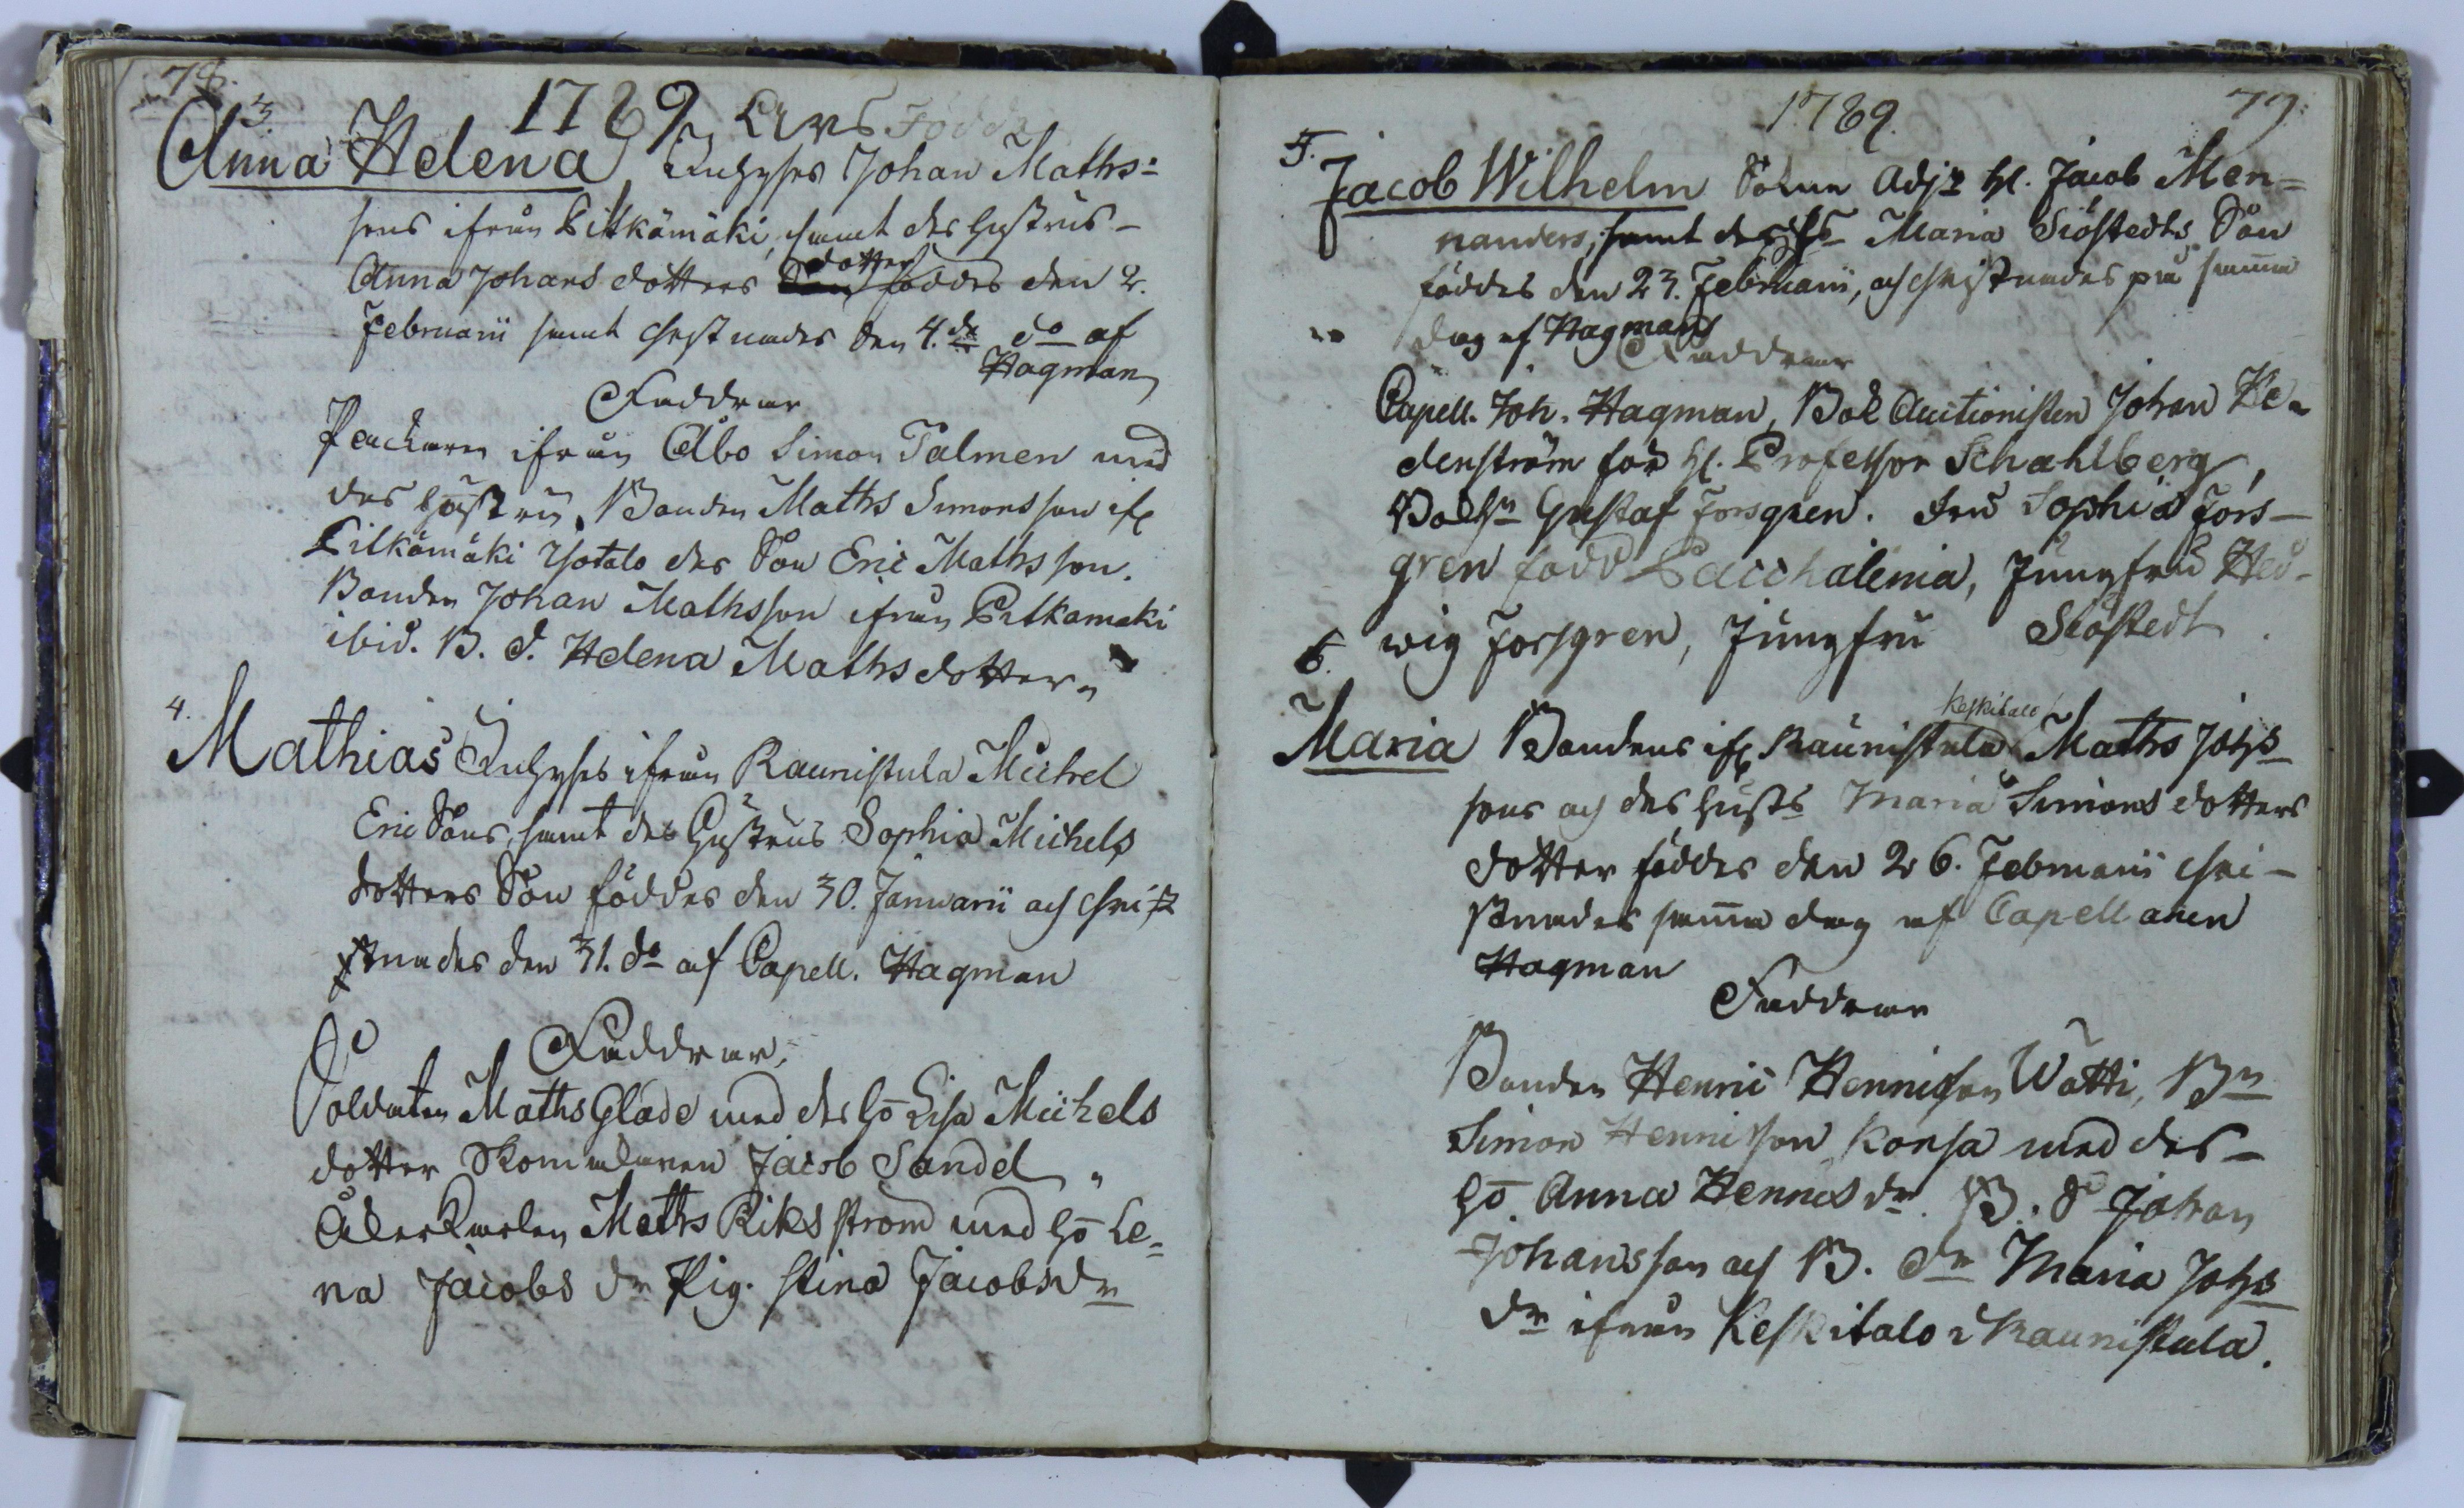 78.
1789 Åhrs Födde
3.
Anna Helena Inhyses Johan Maths=
sons ifrån Pitkämäki, samt des hustrus
Anna Johansdotters dotter föddes den 2.
Februarii samt christnades den 4.de do af
Hagman
Faddrar
Packaren ifrån Åbo Simon Talmen med
des hustru, Bonden Maths Simonsson ifr
Pitkämäki Isotalo des Son Eric Mathsson.
Bonden Johan Mathsson ifrån Pitkämäki
ibid. B. d. Helena Mathsdotter
4.
Mathias Inhyses ifrån Raunistula Michel
Ericsons, samt des Hustrus Sophia Michels
dotters Son föddes den 30. Januarii och chri
stnades den 31. do af Capell. Hagman
Faddrar
Soldaten Maths Glade med des ho Lisa Michels
dotter Skomakaren Jacob Sandel
Maths Riksstrom med ho Le=
na Jacobs dr Pig. Stina Jacobsdr
1789. 77.
5.
Jacob Wilhelm Adj Hl. Jacob Men=
nanders, samt des Maria Siöstedts Son
föddes den 23. Februarii, och christnades på samma
dag af Hagman
Faddrar
Capell. Joh. Hagman, Auctionisten Johan He=
denström för Hl. Professor Schahlberg,
Gustaf Forsgren. Fru Sophia Fors-
gren född Pacchalenia, Jungfru Hed-
wig Forsgren, Jungfru Siöstedt.
6.
Keskitalo
Maria Bondens ifr Raunistula Maths Johs
sons och des husts Maria Simonsdotters
dotter föddes den 26. Februarii chri-
stnades samma dag af Capellanen
Hagman
Faddrar
Bonden Henric Henricson Watti, Bn
Simon Henricson Korsa med des
ho Anna Henricsdr. B. S Johan
Johansson och B. dr Maria Johs
dr ifrån Keskitalo i Raunistula.